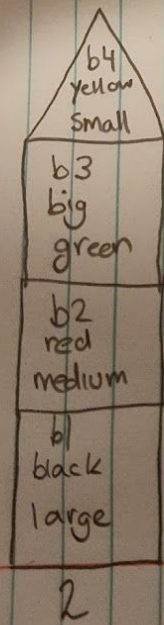 b4
yellow
small
b3
big
green
b2
red
medium
b1
black
large
2